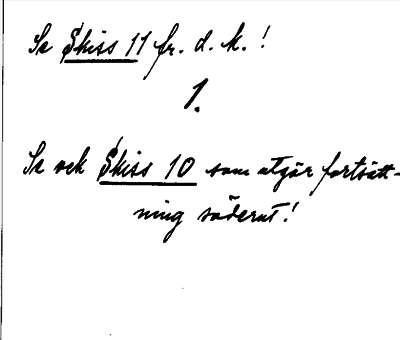 Se Skiss 11 fr. d. k.!
1.
Se ock Skiss 10 som utgör fortsätt-
ning söderut!